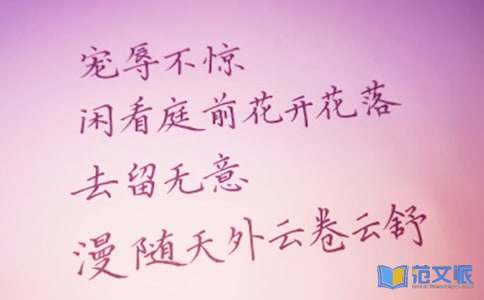 宠辱不惊
闲看庭前花开花落
去留无意
漫随天外云卷云舒
范文派